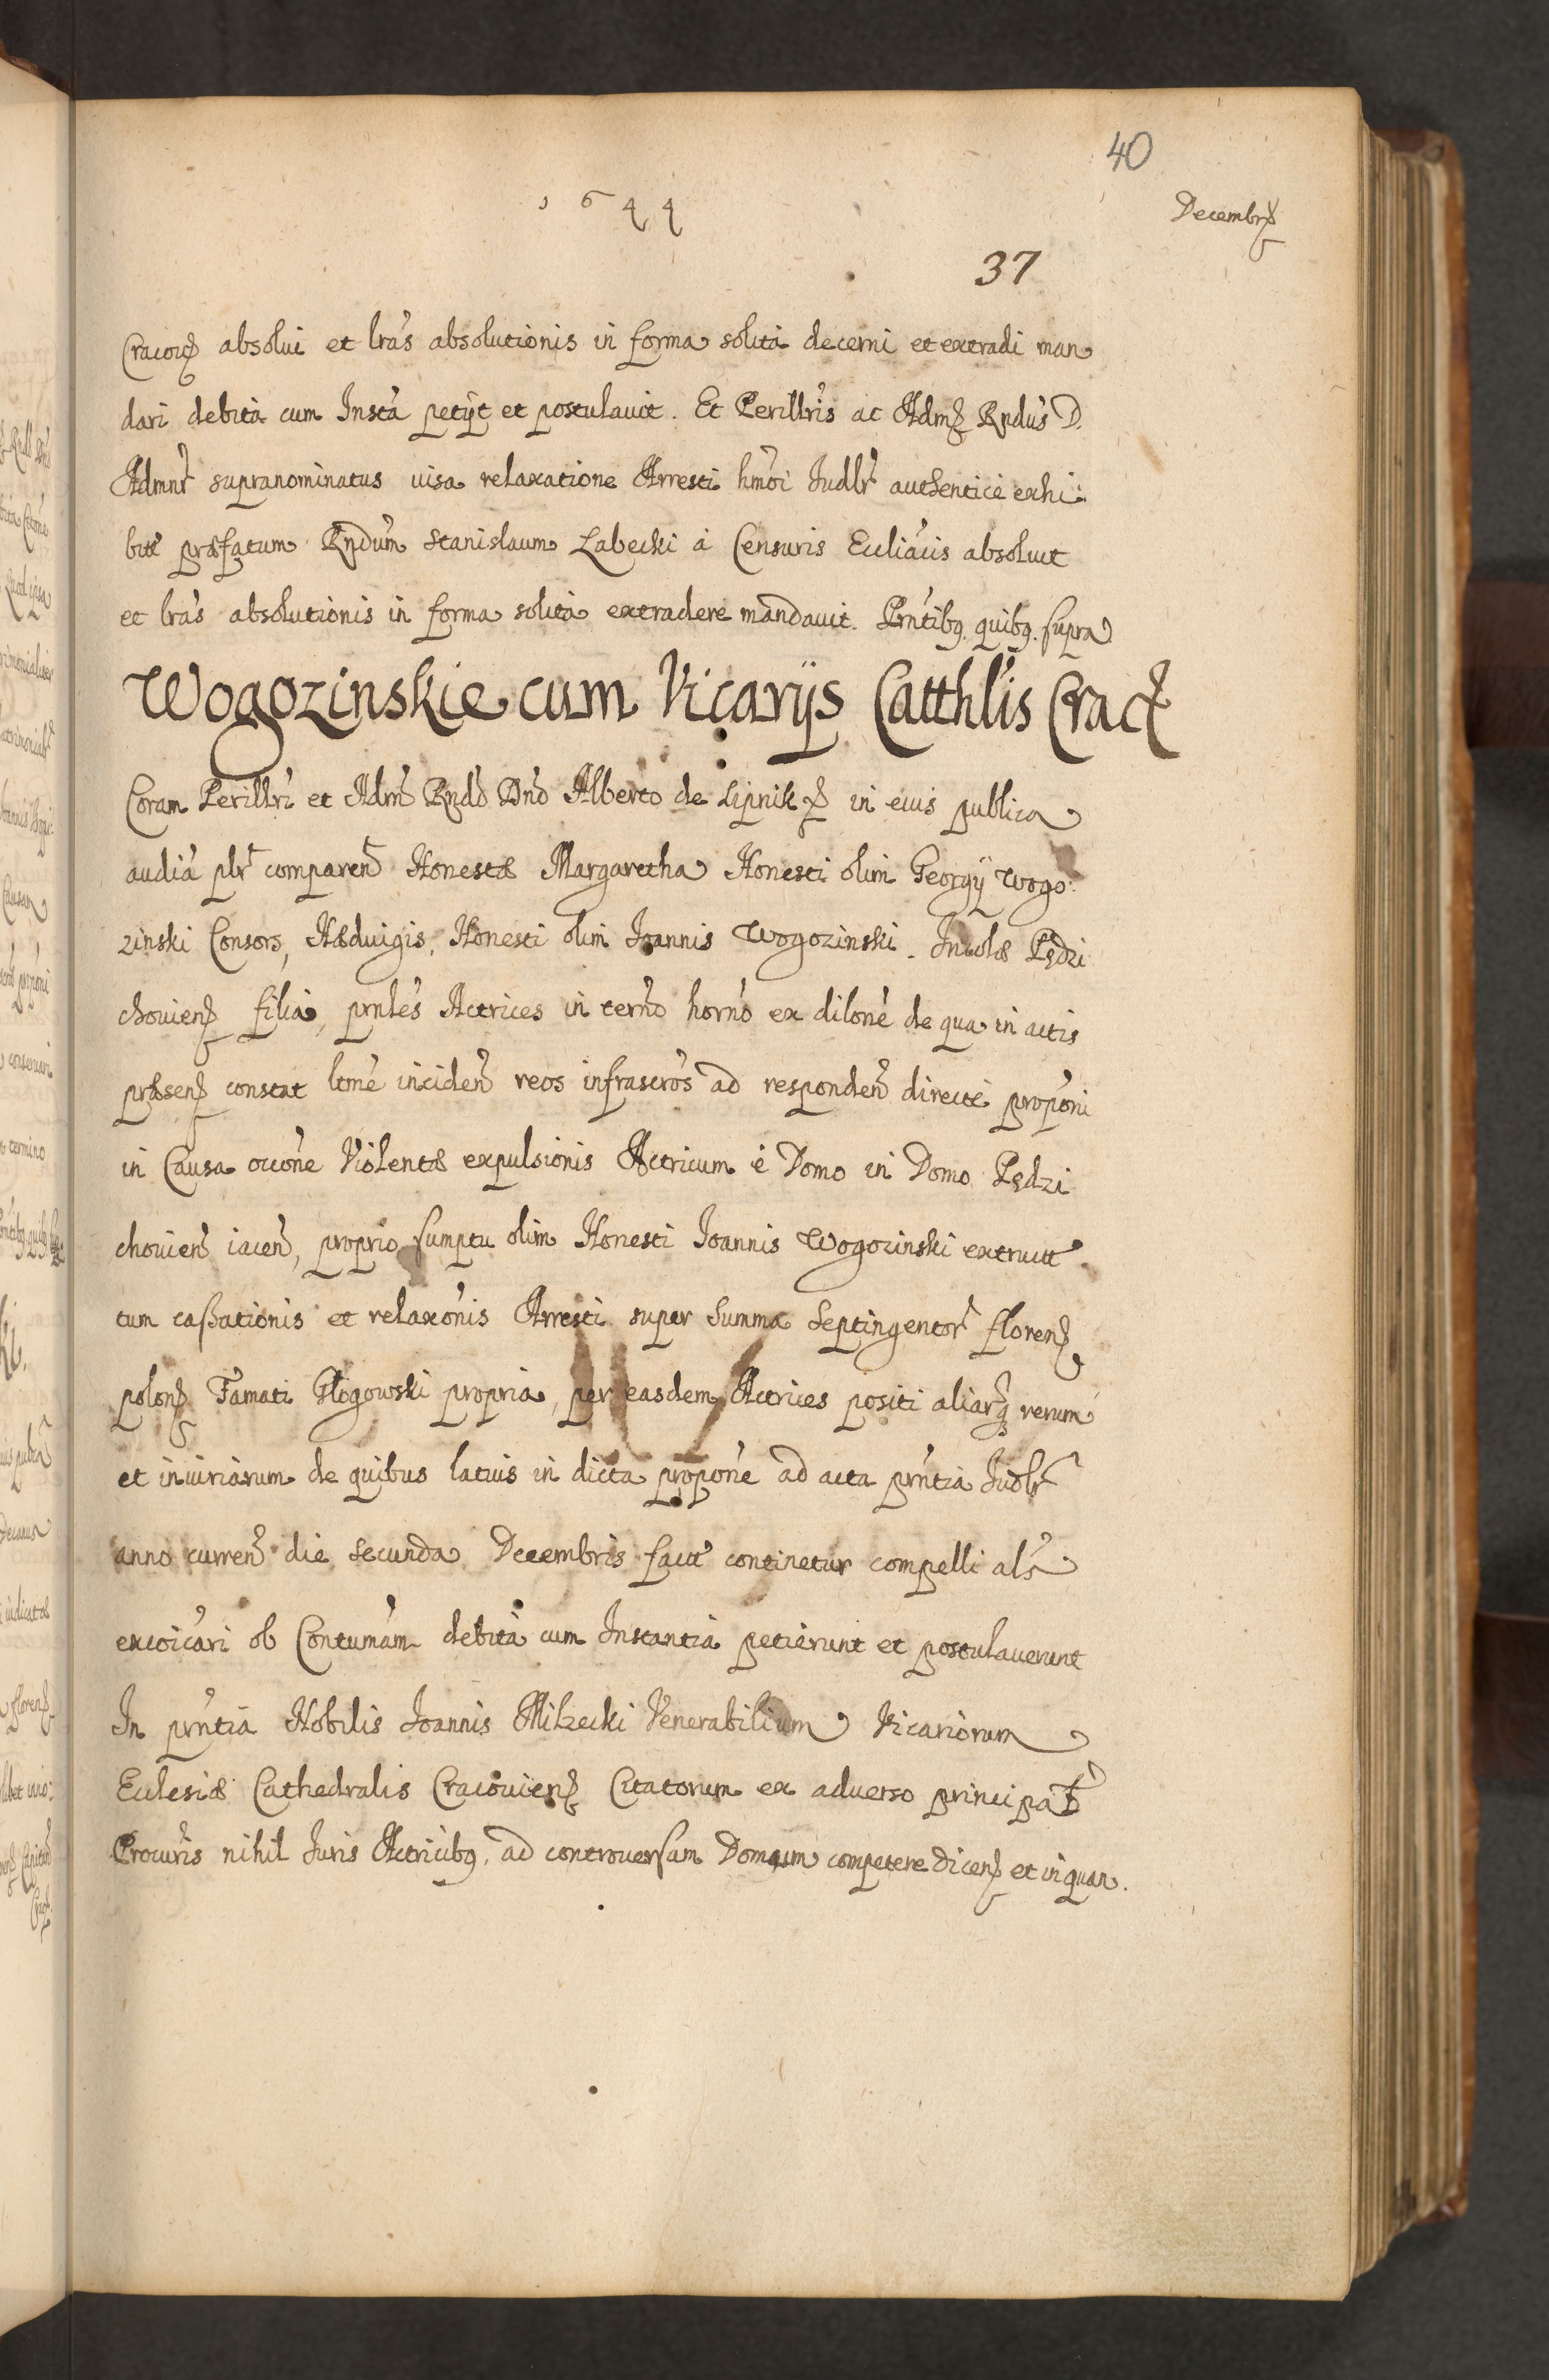 40
1644
Decembrs
37
Cracovs absolui et lras absolutionis in forma solità decerni et extradi man
dari debità cum Instà petijt et postulauit. Et Perillris ac Adm Rndus D.
Admnr supranominatus uisa relaxatione Arresti hmoi Iudlr authenticè exhi:
bitæ præfatum Rndum Stanislaum Labecki à Censuris Eccliacis absoluit
et lras absolutionis in forma solità extradere mandauit. Prntibq quibq supra
Wogozinskie cum Vicarijs Catthlis Crac
Coram Perillri et Adm Rndo Dno Alberto de Lipnik in eius publica
audià plr comparen Honestæ Margaretha Honesti olim Georgij Wogo:
zinski Consors, Hæduigis, Honesti olim Joannis Wogozinski. Incolæ Pędzi
chouiens filia, prnles Actrices in termo horno ex dilone de qua in actis
præsens constat ltme inciden reos infrascros ad responden directè proponi
in Causa occone Violentæ expulsionis Actricum è Domo in Domo Pędzi
chouien iacen, proprio sumptu olim Honesti Joannis Wogozinski extructæ
tum caßationis et relaxonis Arresti super Summa Septingentor florens
polons Famati Glogowski propria, per easdem Actrices positi aliarq rerum
et iniuriarum de quibus latius in dicta propone ad acta prntia Iudlr
anno curren die secunda Decembris fact continetur compelli als
excoicari ob Contumam debità cum Instantià petierunt et postulauerunt
In prntia Nobilis Joannis Milzecki Venerabilium Vicariorum
Ecclesiæ Cathedralis Cracouiens Citatorum ex aduerso principal
Procuris nihil Iuris Actricibq ad controuersam Domum competere dicens et in quan.